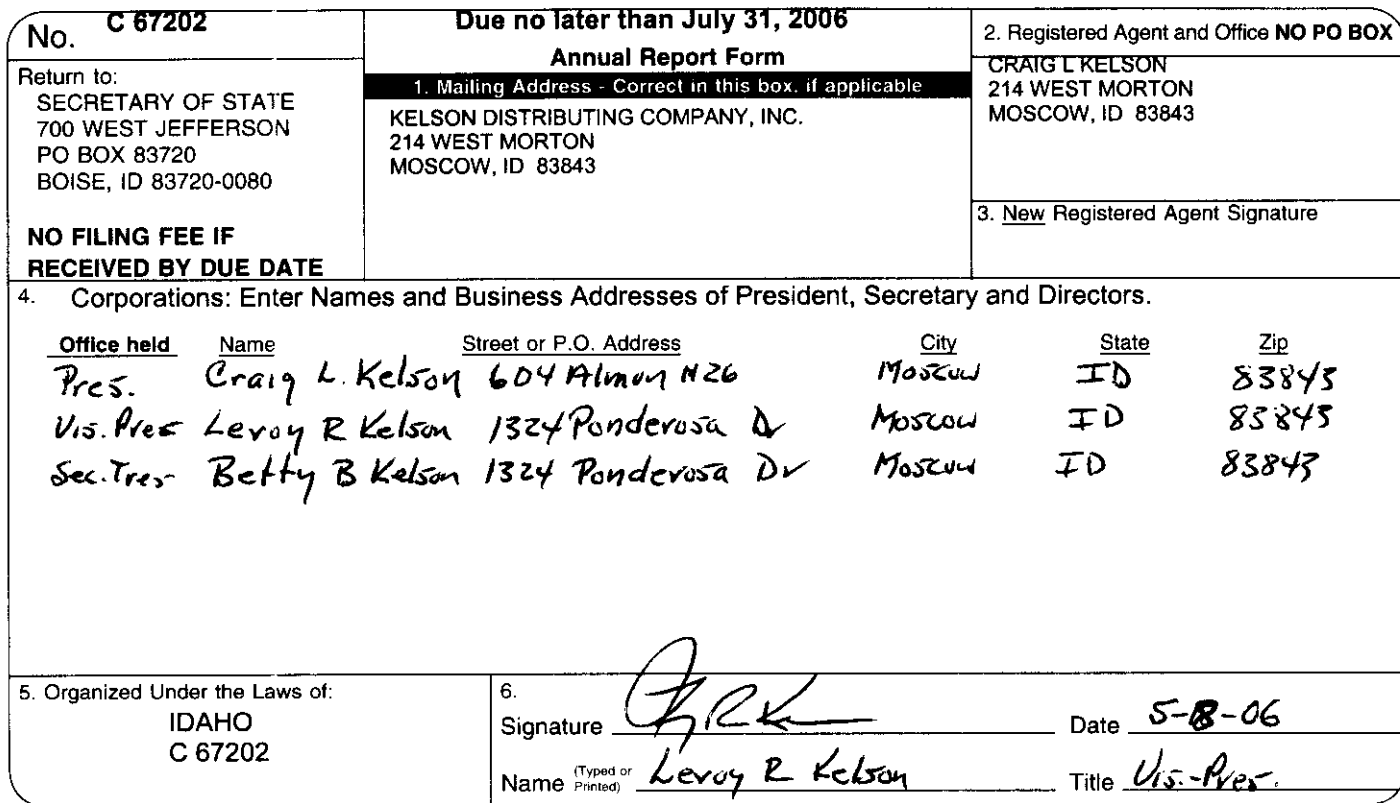 No. C 67202
Return to:
SECRETARY OF STATE
700 WEST JEFFERSON
PO BOX 83720
BOISE, ID 83720-0080
NO FILING FEE IF
RECEIVED BY DUE DATE
Due no later than July 31, 2006
Annual Report Form
1. Mailing Address - Correct in this box, if applicable
KELSON DISTRIBUTING COMPANY, INC.
214 WEST MORTON
MOSCOW, ID 83843
2. Registered Agent and Office NO PO BOX
CRAIG L KELSON
214 WEST MORTON
MOSCOW, ID 83843
3. New Registered Agent Signature
4. Corporations: Enter Names and Business Addresses of President, Secretary and Directors.
Office held Name Street or P.O. Address City State Zip
Pres. Craig L. Kelson 604 Almon #26 Moscow ID 83843
Vis. Pres Leroy R Kelson 1324 Ponderosa Dr Moscow ID 83843
Sec. Tres Betty B Kelson 1324 Ponderosa Dr Moscow ID 83843
5. Organized Under the Laws of:
IDAHO
C 67202
6.
Signature Date
Name (Typed or Printed) Leroy R Kelson Title Vis.-Pres.